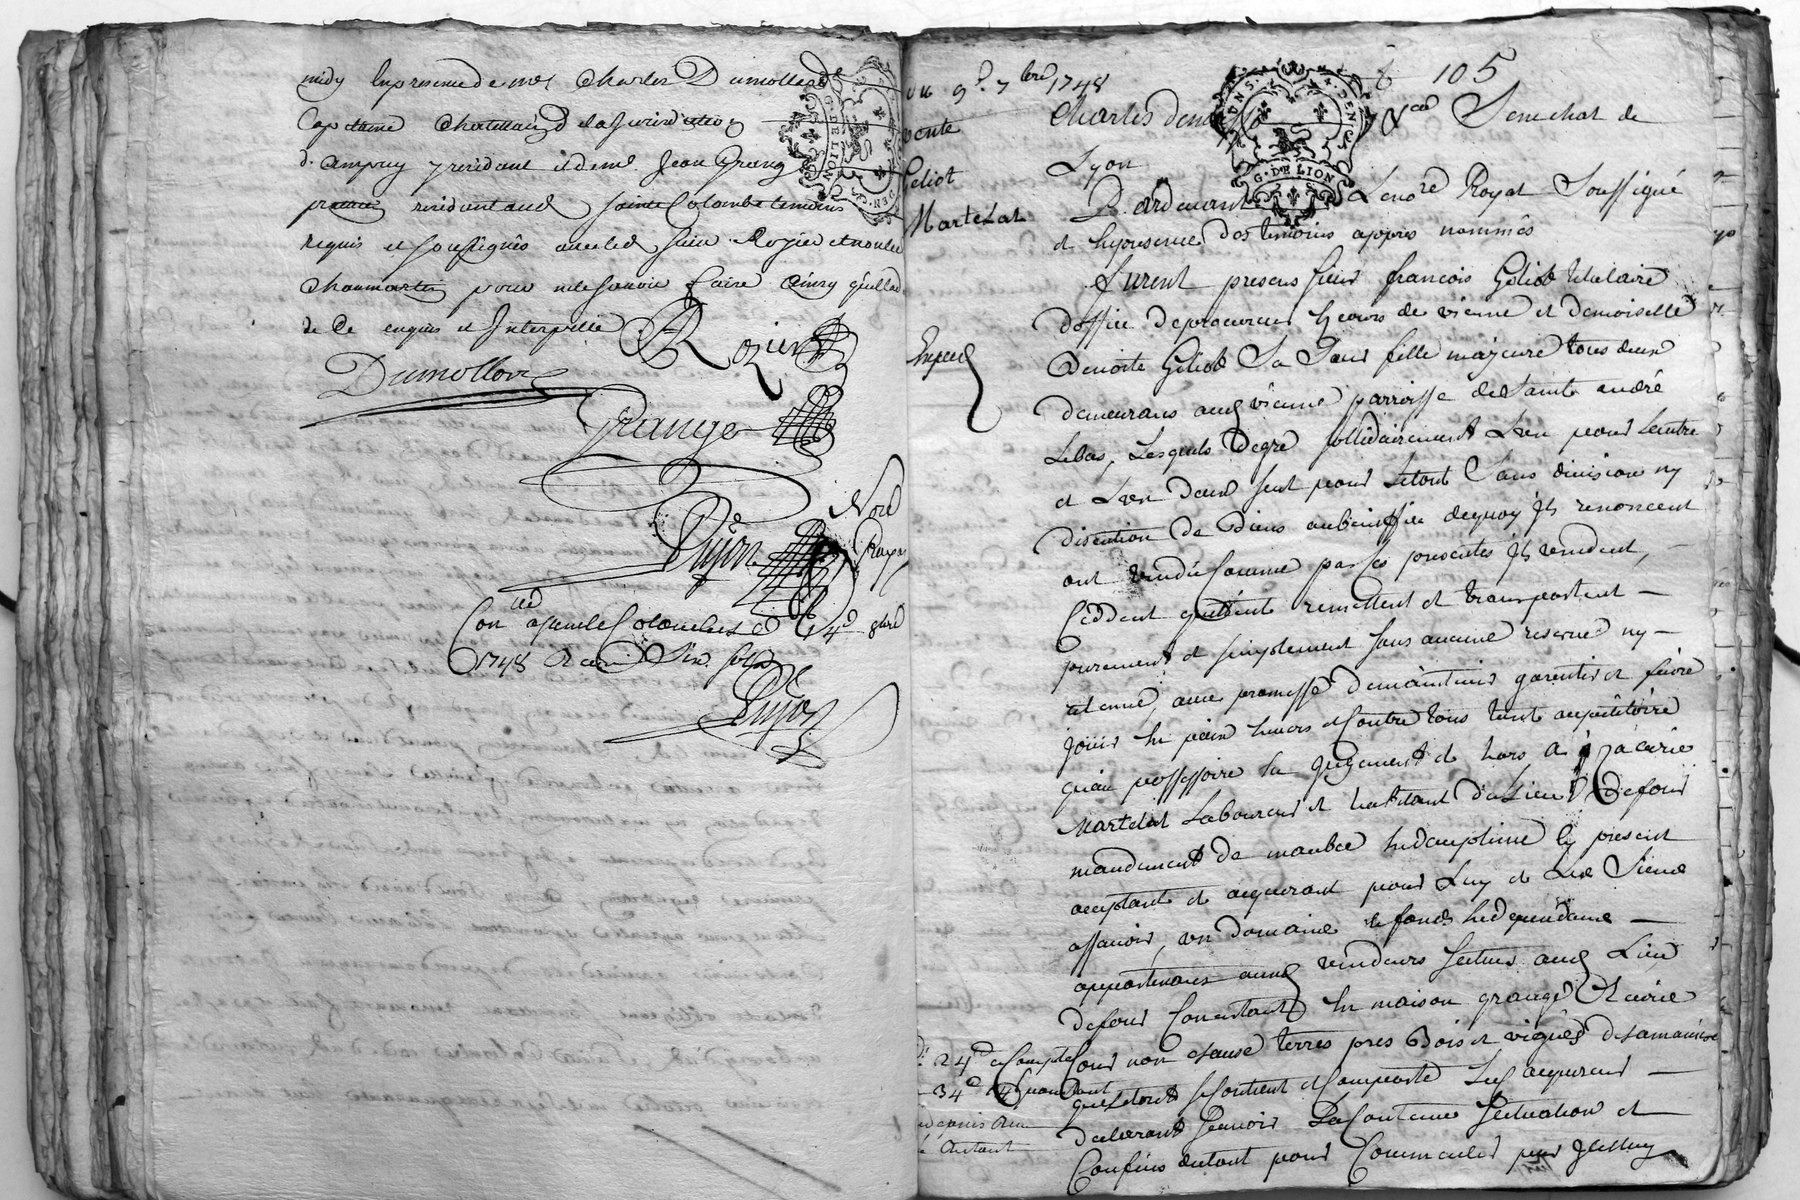 midy En presence de mrs Charles Dumollard
Capitaine Chatelain de la jurisdiction
d'ampuy y residant et de mr Jean Grange
residant aud sainte Colombe temoins
requis et soussignés avec led sieur Rozier et non led
Chaumartin pour ne le savoir faire ainsy quil a
de ce enquis et Interpellé
Rozier
Dumollard
Grange
Dujon
Nore
Royal
Con lé a sainte Colombe le 4e 8bre
1748 Reçu Six sols
Dujon
105
Du 9e 7bre 1748
vente
Geliot
Martelat
Exped
Charles Senechal de
Lyon
Pardevant le no.re Royal soussigné
et En presence des temoins appres nommés
furent presens sieur françois Geliot titulaire
d'office de procureur En cours de vienne et demoiselle
Benoite Geliot Sa Sœur fille majeure tous deux
demeurans aud vienne parroisse de Saint andré
Lebas, Lesquels de gré sollidairement L'un pour L'autre
et L'un deux seul pour Le tout Sans division ny
discution de Biens au beneffice de quoy Ils renoncent
ont vendu Comme par ces presentes Ils vendent,
Ceddent quittent remettent et transportent
purement et simplement sans aucune reserve ny
retenue, avec promesse de maintenir garentir et faire
jouir En paix Envers et Contre tous tant au petitoire
qu'au possessoire En Jugement et hors a Zacarie
Martelat Laboureur et habitant du Lieu de four
mandement de maubec En dauphiné Cy present
acceptant et acquerant pour Luy et Les Siens
assavoir, un domaine et fonds En dependans
appartenans auxd vendeurs scitués aud Lieu
de four Consistant En maison grange Ecurie
Cour aisance terres prés Bois et vignes de la maniere
que Le tout se Contient et Comporte Led acquereur
declarant Scavoir La Contenue Scituation et
Confins du tout pour
24e
34e